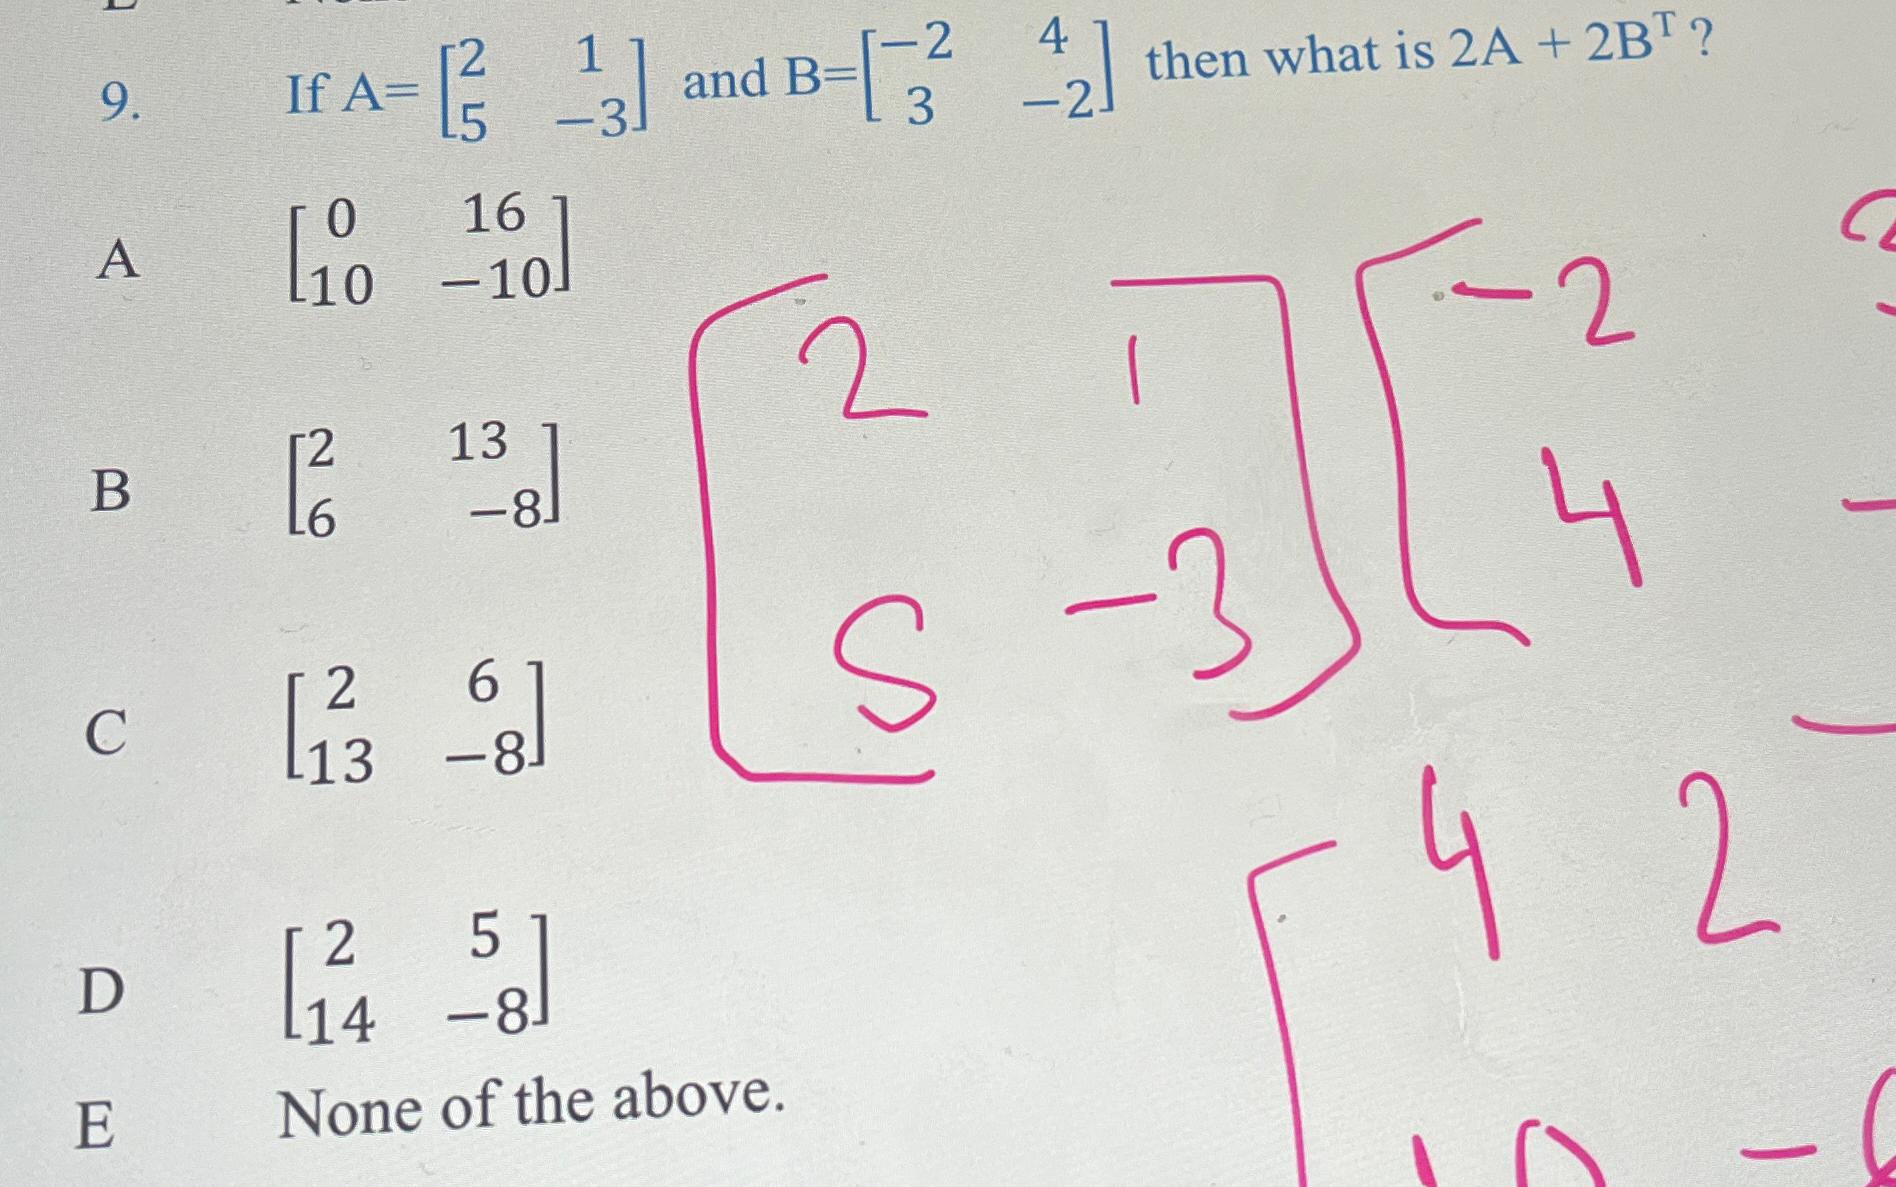 9. If A= [2 1 5 -3] and B= [-2 4 3 -2] then what is 2A + 2Bᵀ ?
A [0 16 10 -10]
B [2 13 6 -8]
C [2 6 13 -8]
D [2 5 14 -8]
E None of the above.
2 1 -2
5 -3 4
4 2
10 -